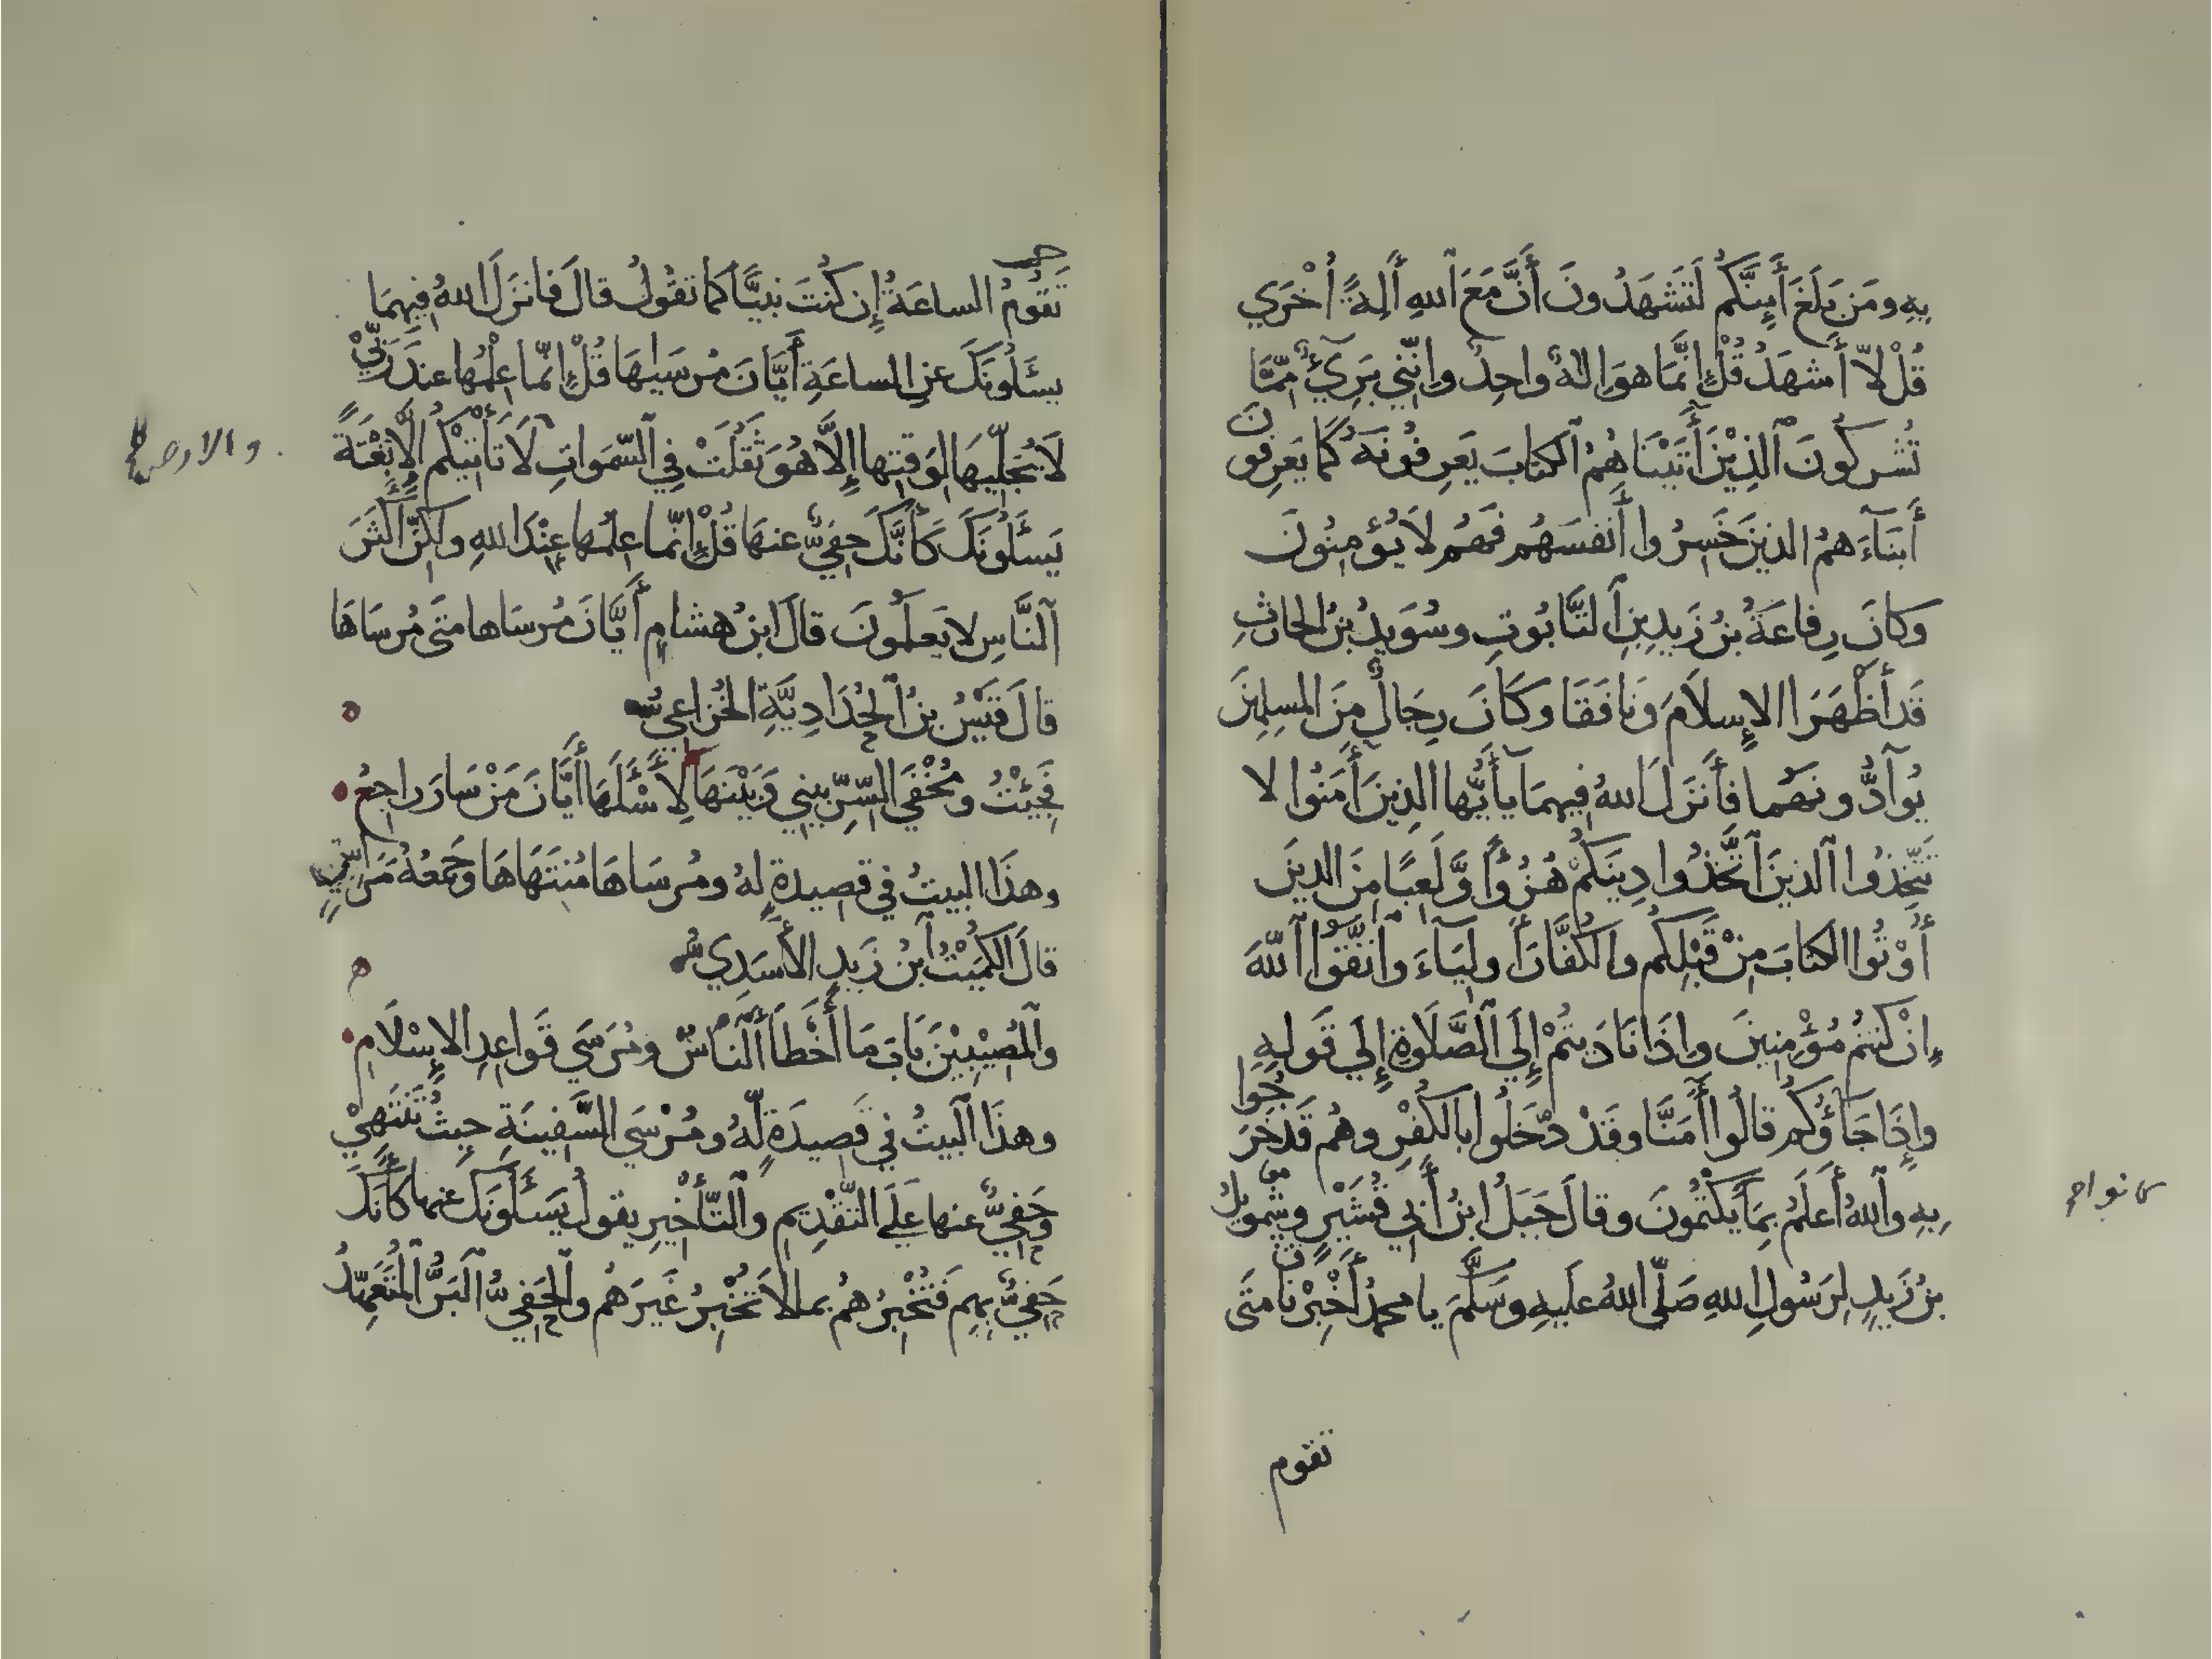 بِهِ ومَن بَلَغَ أَئِنَّكُم لَتَشهَدُونَ أَنَّ مَعَ ٱللهِ أَلِهةً أُخْرَي
قُلْ لاّ أَشهَدُ قُلْ إِنَّمَا هوَ إلهٌ واحِدٌ وإنَّنِي بَرِيٓءٌ مِّمَّا
تُشرِكُونَ ٱلذِيْنَ أٓتَيْنَاهُمُ ٱلكتابَ يَعرِفُونَهُ كَمَا يَعرِفونَ
أَبنَآءَهمُ الذينَ خَسِرُوا أَنفسَهُم فَهُم لاَ يُؤمِنُونَ
وكانَ رِفاعَةُ بنُ زَيدِ بنِ ٱلتَّابُوتِ وسُوَيدُ بنُ الحارثِ
قَد أَظْهَرَا الإِسلاَمَ وَنَافَقَا وكَانَ رِجَالٌ مِنَ المسلِمِينَ
يُوآدُّونَهُما فأَنزَلَ اللهُ فِيهِمَا يآ أَيُّها الذِينَ أٓمَنُوا لا
تَتَّخِذُوا ٱلذينَ ٱتَّخَذُوا دِينَكُمْ هُزُوًا وَّلَعِبًا مِنَ الذِينَ
أُوْتُوا الكتابَ مِنْ قَبْلِكُم والكُفَّارَ أَولِيَآءَ وٱتَّقُوا ٱللَّهَ
إنْ كنتُم مُؤْمِنِينَ وإذَا نَادَيتُمْ إِلَي ٱلصَّلَوةِ إِلَي قَولِهِ
وإِذَا جَآؤُكُم قالُوا أٓمَنَّا وقَدْ دَّخَلُوا بالكُفْرِ وهُم قَد خَرَجُوا
بِهِ وٱللهُ أَعلَمُ بِمَا يَكْتُمُونَ وقالَ جَبَلُ ابنُ أَبِي قُشَيْرٍ وشَمويلُ
بنُ زَيدٍ لِرَسُولِ اللهِ صَلّي اللهُ عليهِ وسَلَّمَ يا محمدُ أَخْبِرْنَا متَى
تقوم
تَقُومُ الساعَةُ إِن كُنتَ نبيًّا كما تقُولُ قالَ فانزَلَ اللهُ فِيهِمَا
يسئَلُونَكَ عنِ الساعَةِ أَيَّانَ مُرسَيهَا قُلْ إنّما عِلْمُها عندَ رَبِّيْ
لاَ يُجَلِّيهَا لِوَقتِها إِلَّا هُوَ ثَقُلَتْ فِي ٱلسّمَواتِ لاَ تَأْتِيْكُم إلَّا بَغْتَةً
والارض صح
يَسئَلُونَكَ كَأَنَّكَ حفِيٌّ عنهَا قُلْ إنّما علمُها عِنْدَ اللهِ ولكِنَّ أَكثَرَ
ٱلنَّاسِ لا يَعلَمُونَ قالَ ابنُ هشامٍ أَيَّانَ مُرسَاها متَى مُرسَاهَا
قالَ قَيْسُ بنُ ٱلحُدَادِيَّةِ الخُزاعيُّ
فَجِئْتُ ومُخْفَي السِّرِّ بيني وَبَيْنَهَا لِأَسْئَلَهَا أَيَّانَ مَنْ سَارَ راجِعُ
وهذَا البيتُ في قصيدةٍ لهُ ومُرسَاهَا مُنتَهَاهَا وجَمعُهُ مَرَاسٍ
قالَ الكُمَيْتُ ٱبنُ زَيدٍ الأَسَدِيُّ
وٱلمُصِيْبِيْنَ بَابَ مَا أَخْطَأَ ٱلنَّاسُ ومُرسَي قَواعِدِ الإِسْلَامِ
وهذَا ٱلبيتُ في قَصِيدَةٍ لّهُ ومُرْسَي السَّفِينَةِ حيثُ تَنتَهِيْ
وَحَفِيٌّ عنها عَلَي التَّقْدِيمِ وٱلتَّأخِيرِ يقولُ يَسئَلُونَكَ عنها كأَنَّكَ
حَفِيٌّ بِهِم فَتُخْبِرُهمُ بما لاَ تُخْبِرُ غَيرَهُم وٱلحَفِيُّ ٱلبَرُّ ٱلمُتَعَهِّدُ